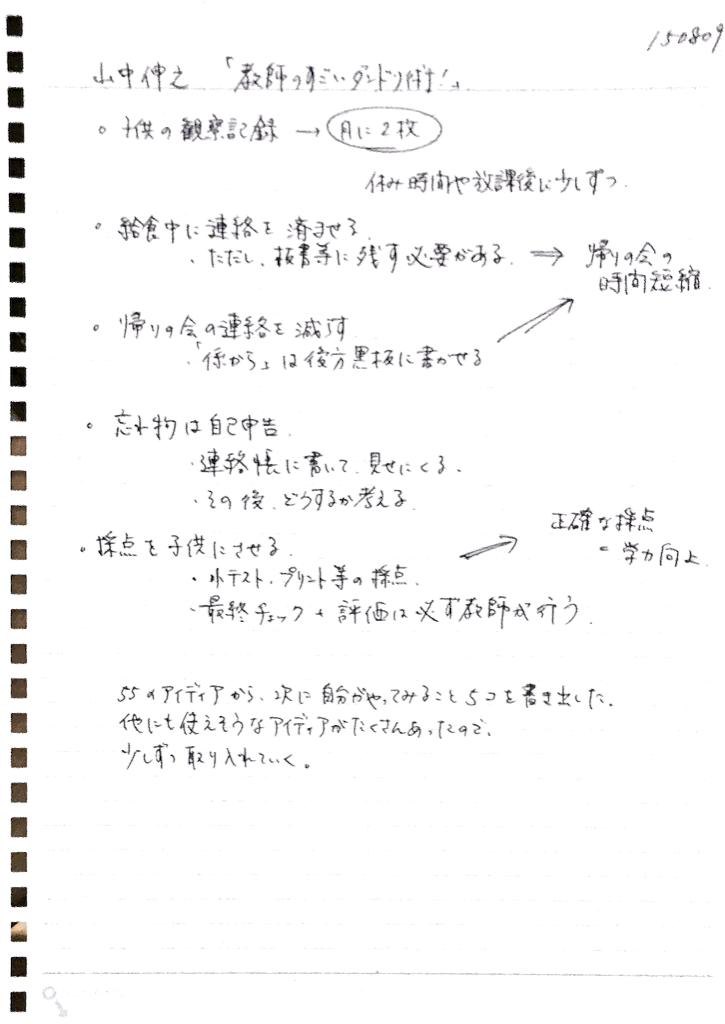 150809
山中伸之 「教師のすごいダンドリ術!」
◦ 子供の観察記録 → 月に2枚
休み時間や放課後に少しずつ
◦ 給食中に連絡を済ませる
・ただし、板書等に残す必要がある ⇒ 帰りの会の
時間短縮
◦ 帰りの会の連絡を減らす
・「係から」は後方黒板に書かせる
◦ 忘れ物は自己申告
・連絡帳に書いて、見せにくる
・その後、どうするか考える
・採点を子供にさせる ⇒ 正確な採点
= 学力向上
・小テスト、プリント等の採点
・最終チェック + 評価は必ず教師が行う
55のアイディアから、次に自分がやってみること5コを書き出した。
他にも使えそうなアイディアがたくさんあったので、
少しずつ取り入れていく。